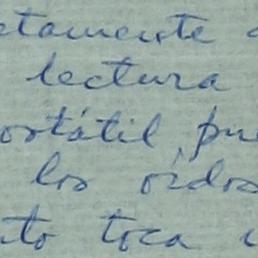 etamente
lectura
ostátil, pue
los oídos
to toca